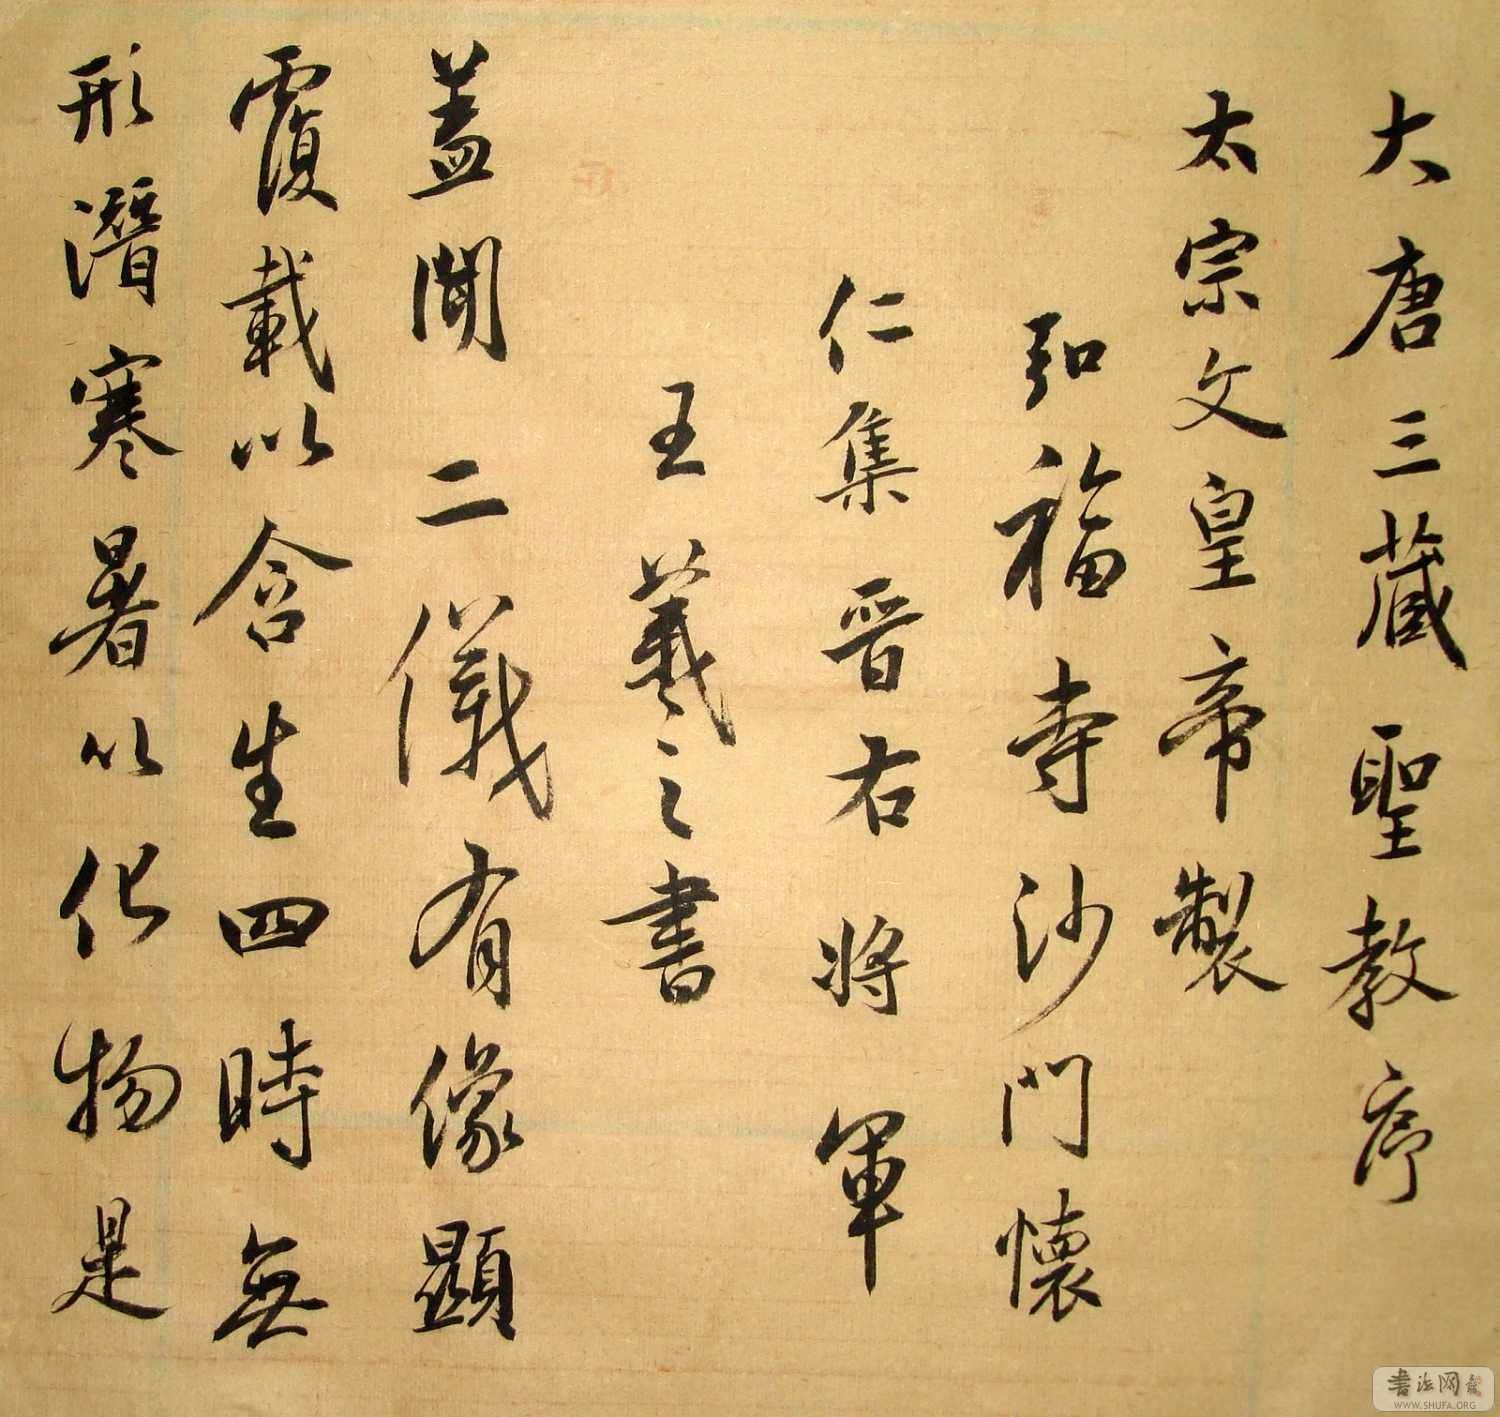 大唐三藏聖教序
太宗文皇帝製
弘福寺沙門懷
仁集晉右將軍
王羲之書
蓋聞二儀有像顯
覆載以含生四時無
形潛寒暑以化物是
書法网
WWW.SHUFA.ORG